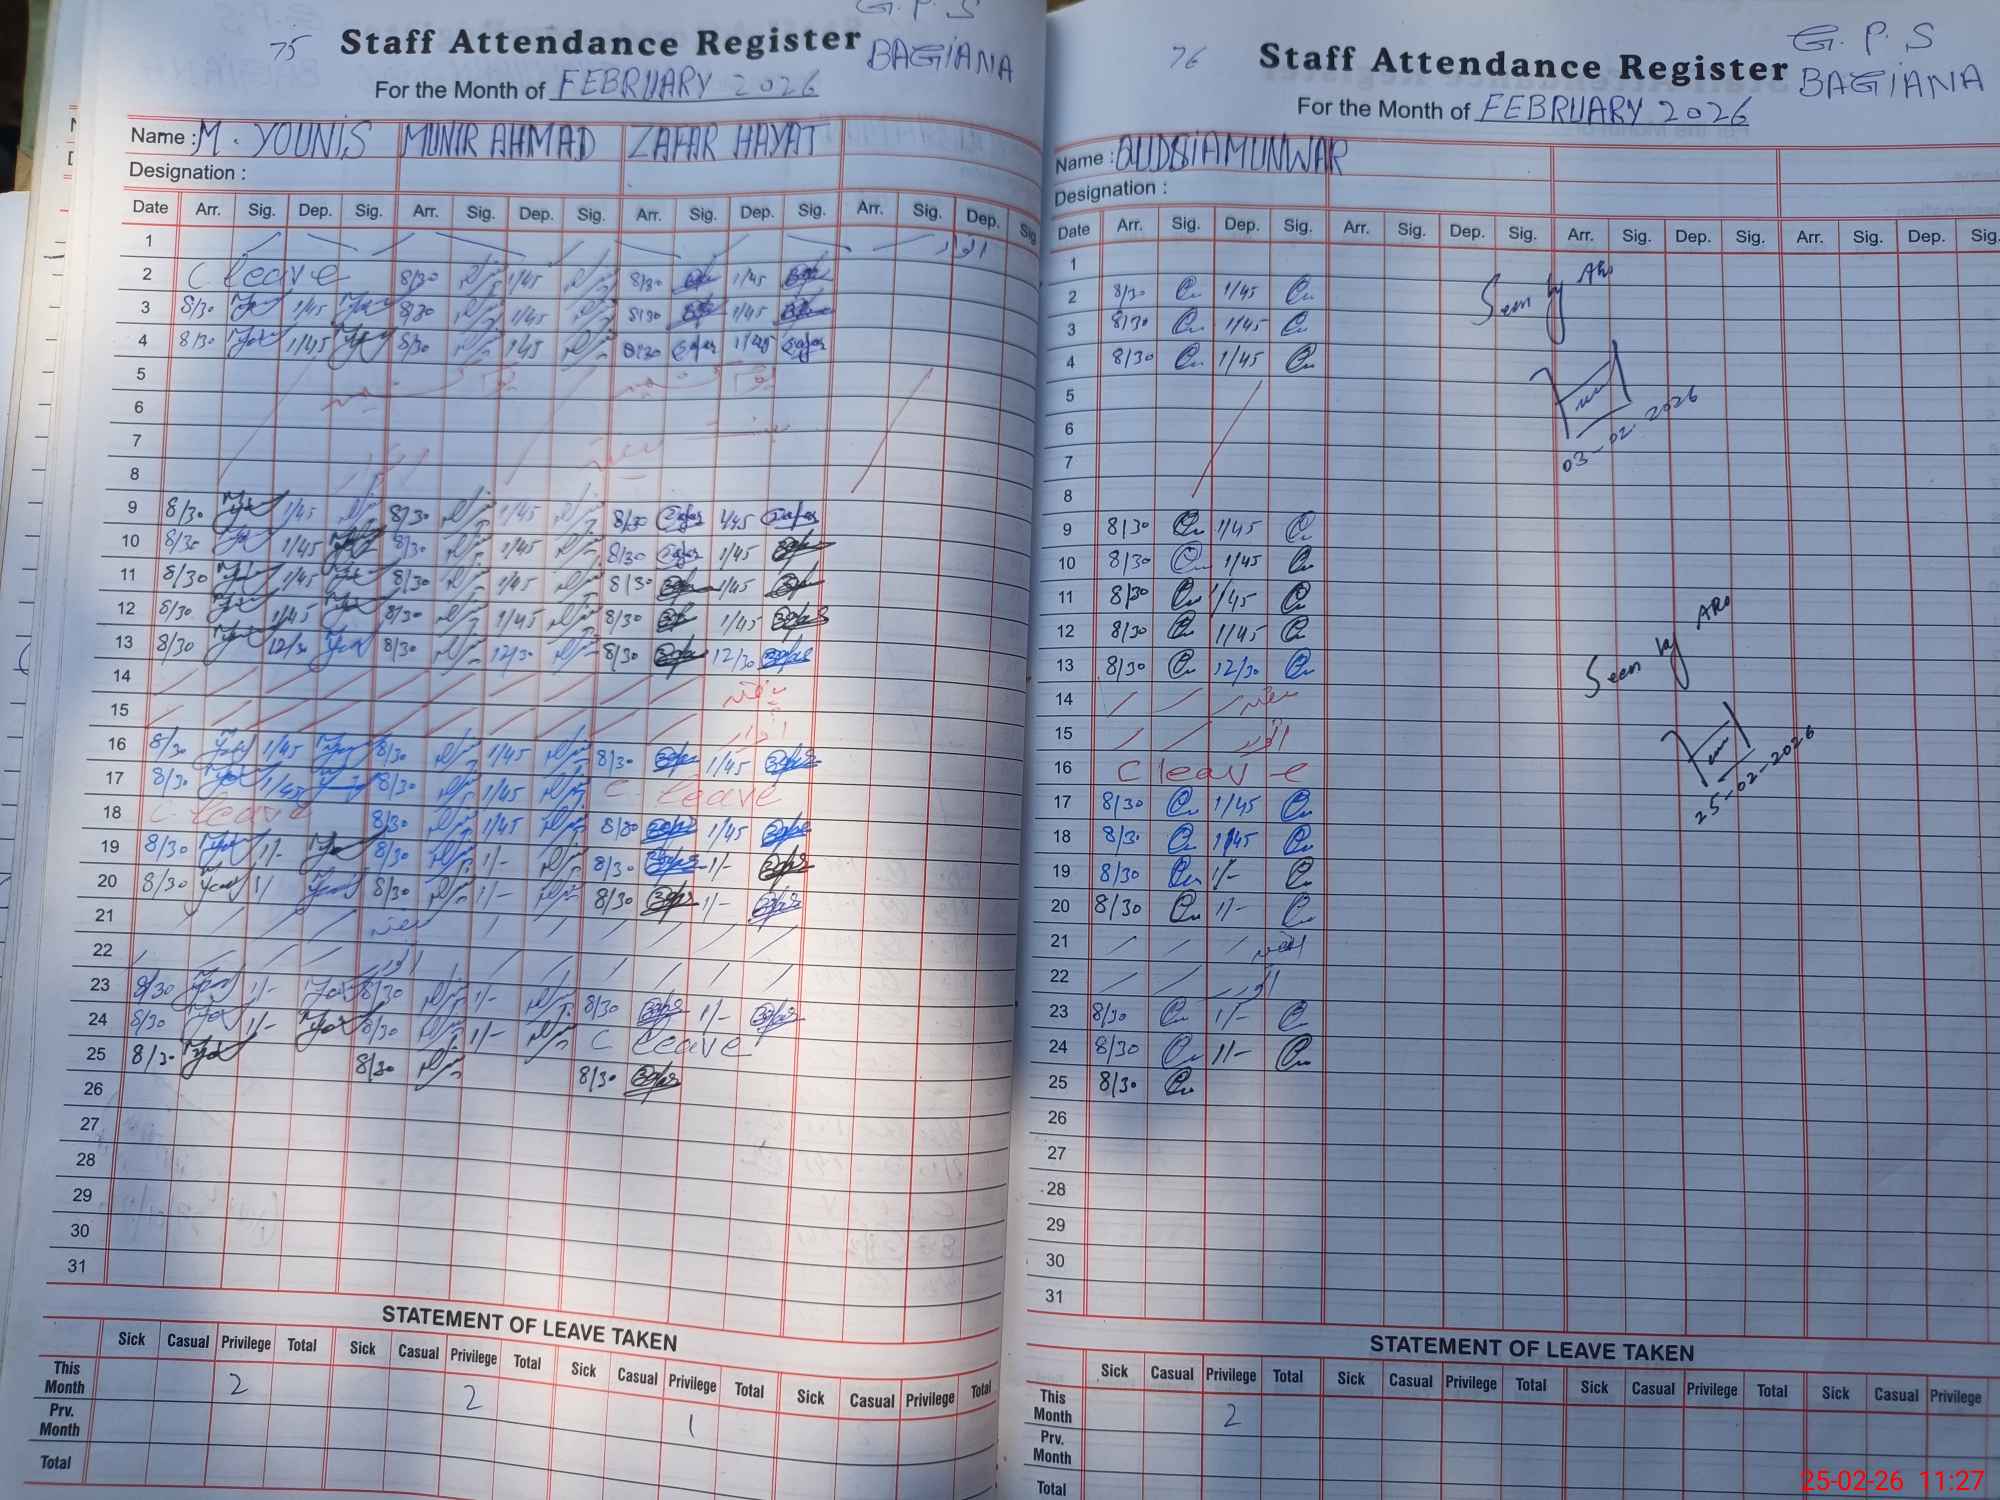 G. P. S
75 Staff Attendance Register BAGIANA
For the Month of FEBRUARY 2026
Name : M. YOUNIS MUNIR AHMAD ZAFAR HAYAT
Designation :
Date Arr. Sig. Dep. Sig. Arr. Sig. Dep. Sig. Arr. Sig. Dep. Sig. Arr. Sig. Dep. Sig
1 اتوار
2 C leave 8/30 1/45 8/30 1/45
3 8/30 1/45 8/30 1/45 8/30 1/45
4 8/30 1/45 8/30 1/45 8/30 1/45
5
6
7
8
9 8/30 1/45 8/30 1/45 8/30 1/45
10 8/30 1/45 8/30 1/45 8/30 1/45
11 8/30 1/45 8/30 1/45 8/30 1/45
12 8/30 1/45 8/30 1/45 8/30 1/45
13 8/30 12/30 8/30 12/30 8/30 12/30
14 ہفتہ
15 اتوار
16 8/30 1/45 8/30 1/45 8/30 1/45
17 8/30 1/45 8/30 1/45 C. leave
18 C leave 8/30 1/45 8/30 1/45
19 8/30 1/- 8/30 1/- 8/30 1/-
20 8/30 1/ 8/30 1/- 8/30 1/-
21 ہفتہ
22 اتوار
23 8/30 1/- 8/30 1/- 8/30 1/-
24 8/30 1/- 8/30 1/- C leave
25 8/30 8/30 8/30
26
27
28
29
30
31
STATEMENT OF LEAVE TAKEN
Sick Casual Privilege Total Sick Casual Privilege Total Sick Casual Privilege Total Sick Casual Privilege Total
This Month 2 2 1
Prv. Month
Total
G. P. S
76 Staff Attendance Register BAGIANA
For the Month of FEBRUARY 2026
Name : QUDSIA MUNWAR
Designation :
Date Arr. Sig. Dep. Sig. Arr. Sig. Dep. Sig. Arr. Sig. Dep. Sig. Arr. Sig. Dep. Sig.
1
2 8/30 1/45 Seen by ARo
3 8/30 1/45
4 8/30 1/45
5
6 03-02-2026
7
8
9 8/30 1/45
10 8/30 1/45
11 8/30 1/45
12 8/30 1/45
13 8/30 12/30 Seen by ARo
14 ہفتہ
15 اتوار
16 C leave
17 8/30 1/45 25-02-2026
18 8/30 1/45
19 8/30 1/-
20 8/30 1/-
21 ہفتہ
22 اتوار
23 8/30 1/-
24 8/30 1/-
25 8/30
26
27
28
29
30
31
STATEMENT OF LEAVE TAKEN
Sick Casual Privilege Total Sick Casual Privilege Total Sick Casual Privilege Total Sick Casual Privilege
This Month 2
Prv. Month
Total
25-02-26 11:27